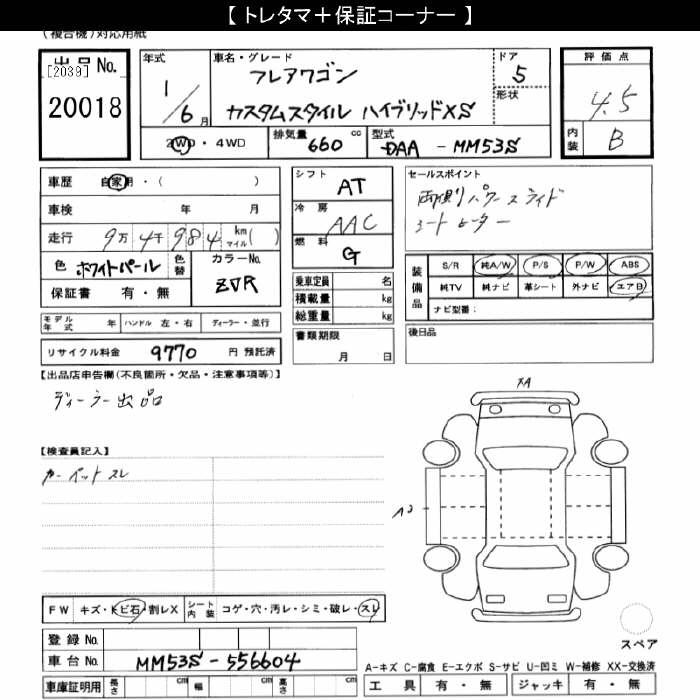 【 トレタマ＋保証コーナー 】
(複合機)対応用紙
出品No.
[2039]
20018
年式
1/6月
車名・グレード
フレアワゴン
カスタムスタイル ハイブリッドXS
ドア
5
形状
評価点
4.5
内装
B
2WD・4WD
排気量 660 cc
型式 DAA - MM53S
車歴 自家用・( )
車検 年 月
走行 9万 4千 984 km マイル( )
色 ホワイトパール
色替
カラーNo.
ZVR
保証書 有・無
シフト
AT
冷房
AAC
燃料
G
乗車定員 名
積載量 kg
総重量 kg
セールスポイント
両側パワースライド
シートヒーター
装備品
S/R 純A/W P/S P/W ABS
純TV 純ナビ 革シート 外ナビ エアB
ナビ型番：
モデル年式 年 ハンドル 左・右 ディーラー・並行
リサイクル料金 9770 円 預託済
書類期限
月 日
後日品
【出品店申告欄(不良箇所・欠品・注意事項等)】
ディーラー出品
【検査員記入】
カーペットスレ
FW キズ・トビ石・割レX シート内装 コゲ・穴・汚レ・シミ・破レ・スレ
登録 No.
車台 No. MM53S - 556604
車庫証明用 長さ cm 幅 cm 高さ cm
スペア
A-キズ C-腐食 E-エクボ S-サビ U-凹ミ W-補修 XX-交換済
工具 有・無 ジャッキ 有・無